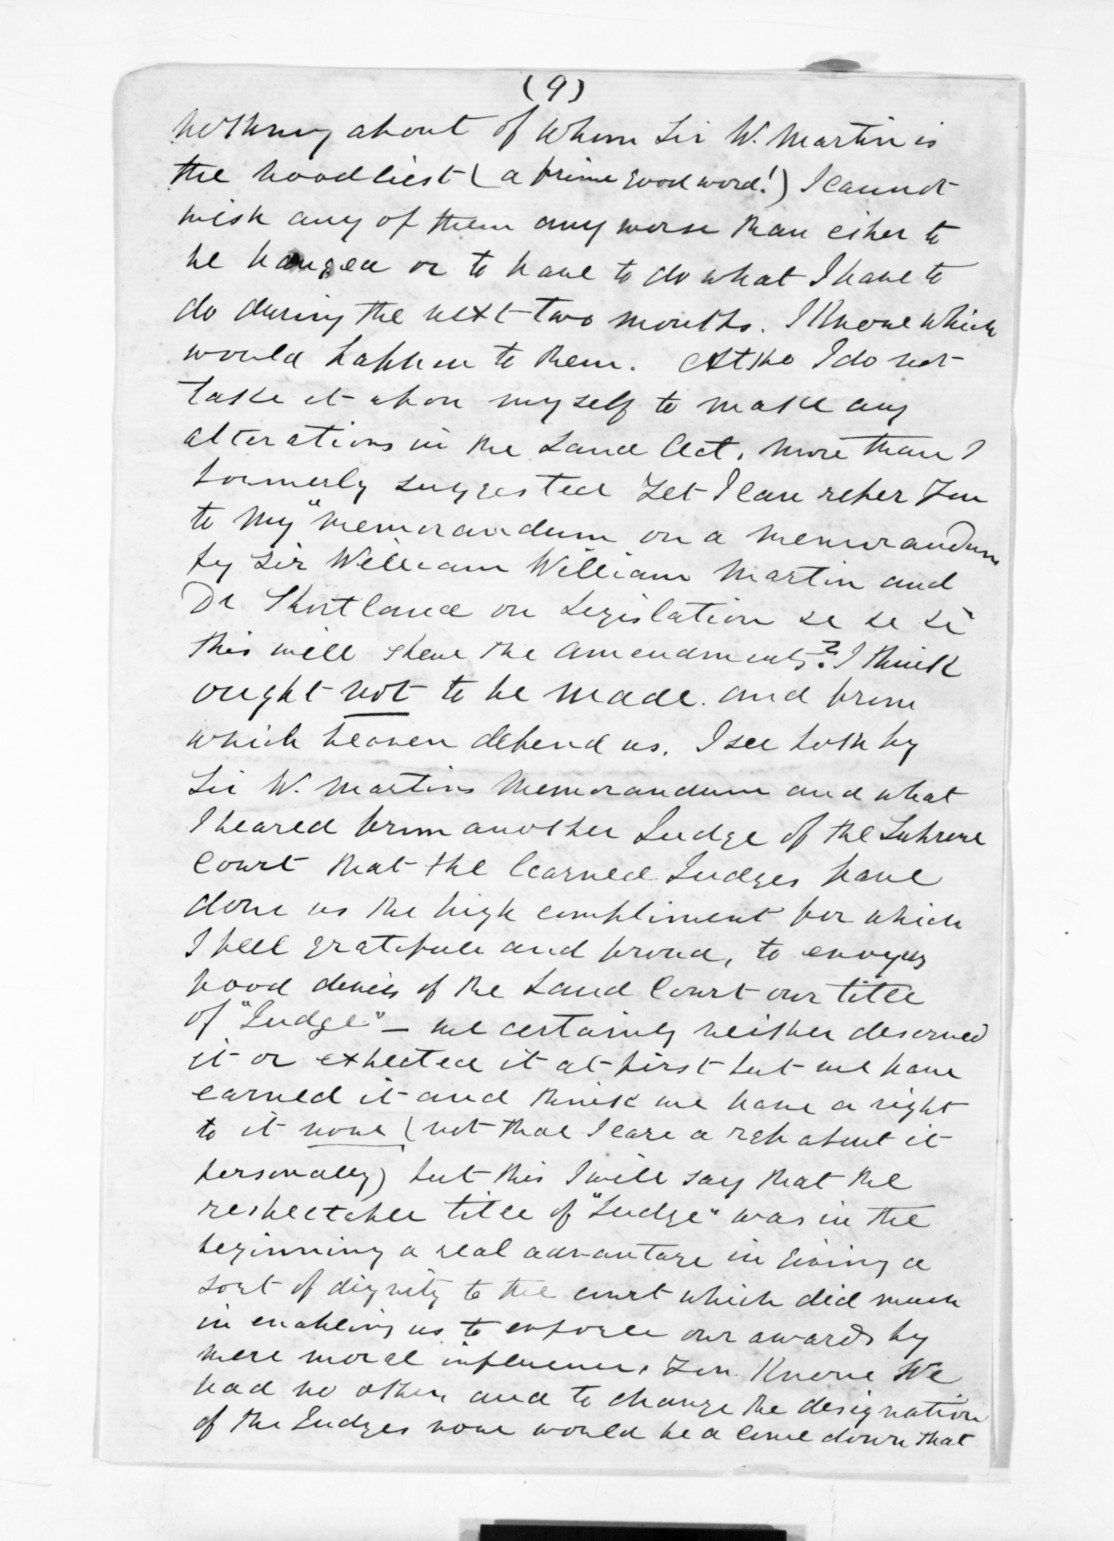 (9)
nothing about of whom Sir W. Martin is
the noodliest (a prime good word!) I cannot
wish any of them any worse than either to
be hanged or to have to do what I have to
do during the next two months. I Know which
would happen to them. Altho I do not
take it upon myself to make any
alterations in the Land Act, more than I
formerly suggested Yet I can refer You
to my "memorandum on a memorandum
by Sir William William Martin and
Dr Shortland on Legislation &c &c &c"
this will shew the amendments? I think
ought not to be made. and from
which heaven defend us. I see both by
Sir W. Martins Memorandum and what
I heared from another Judge of the Supreme
Court that the learned Judges have
done us the high compliment for which
I feel gratefull and proud, to envy us
poor devils of the Land Court our title
of "Judge" — we certainly neither deserved
it or expected it at first but we have
earned it and think we have a right
to it now (not that I care a rap about it
personally) but this I will say that the
respectable title of "Judge" was in the
beginning a real advantage in giving a
sort of dignity to the court which did much
in enabling us to enforce our awards by
mere moral influence, You Know We
had no other, and to change the designation
of the Judges now would be a come down that